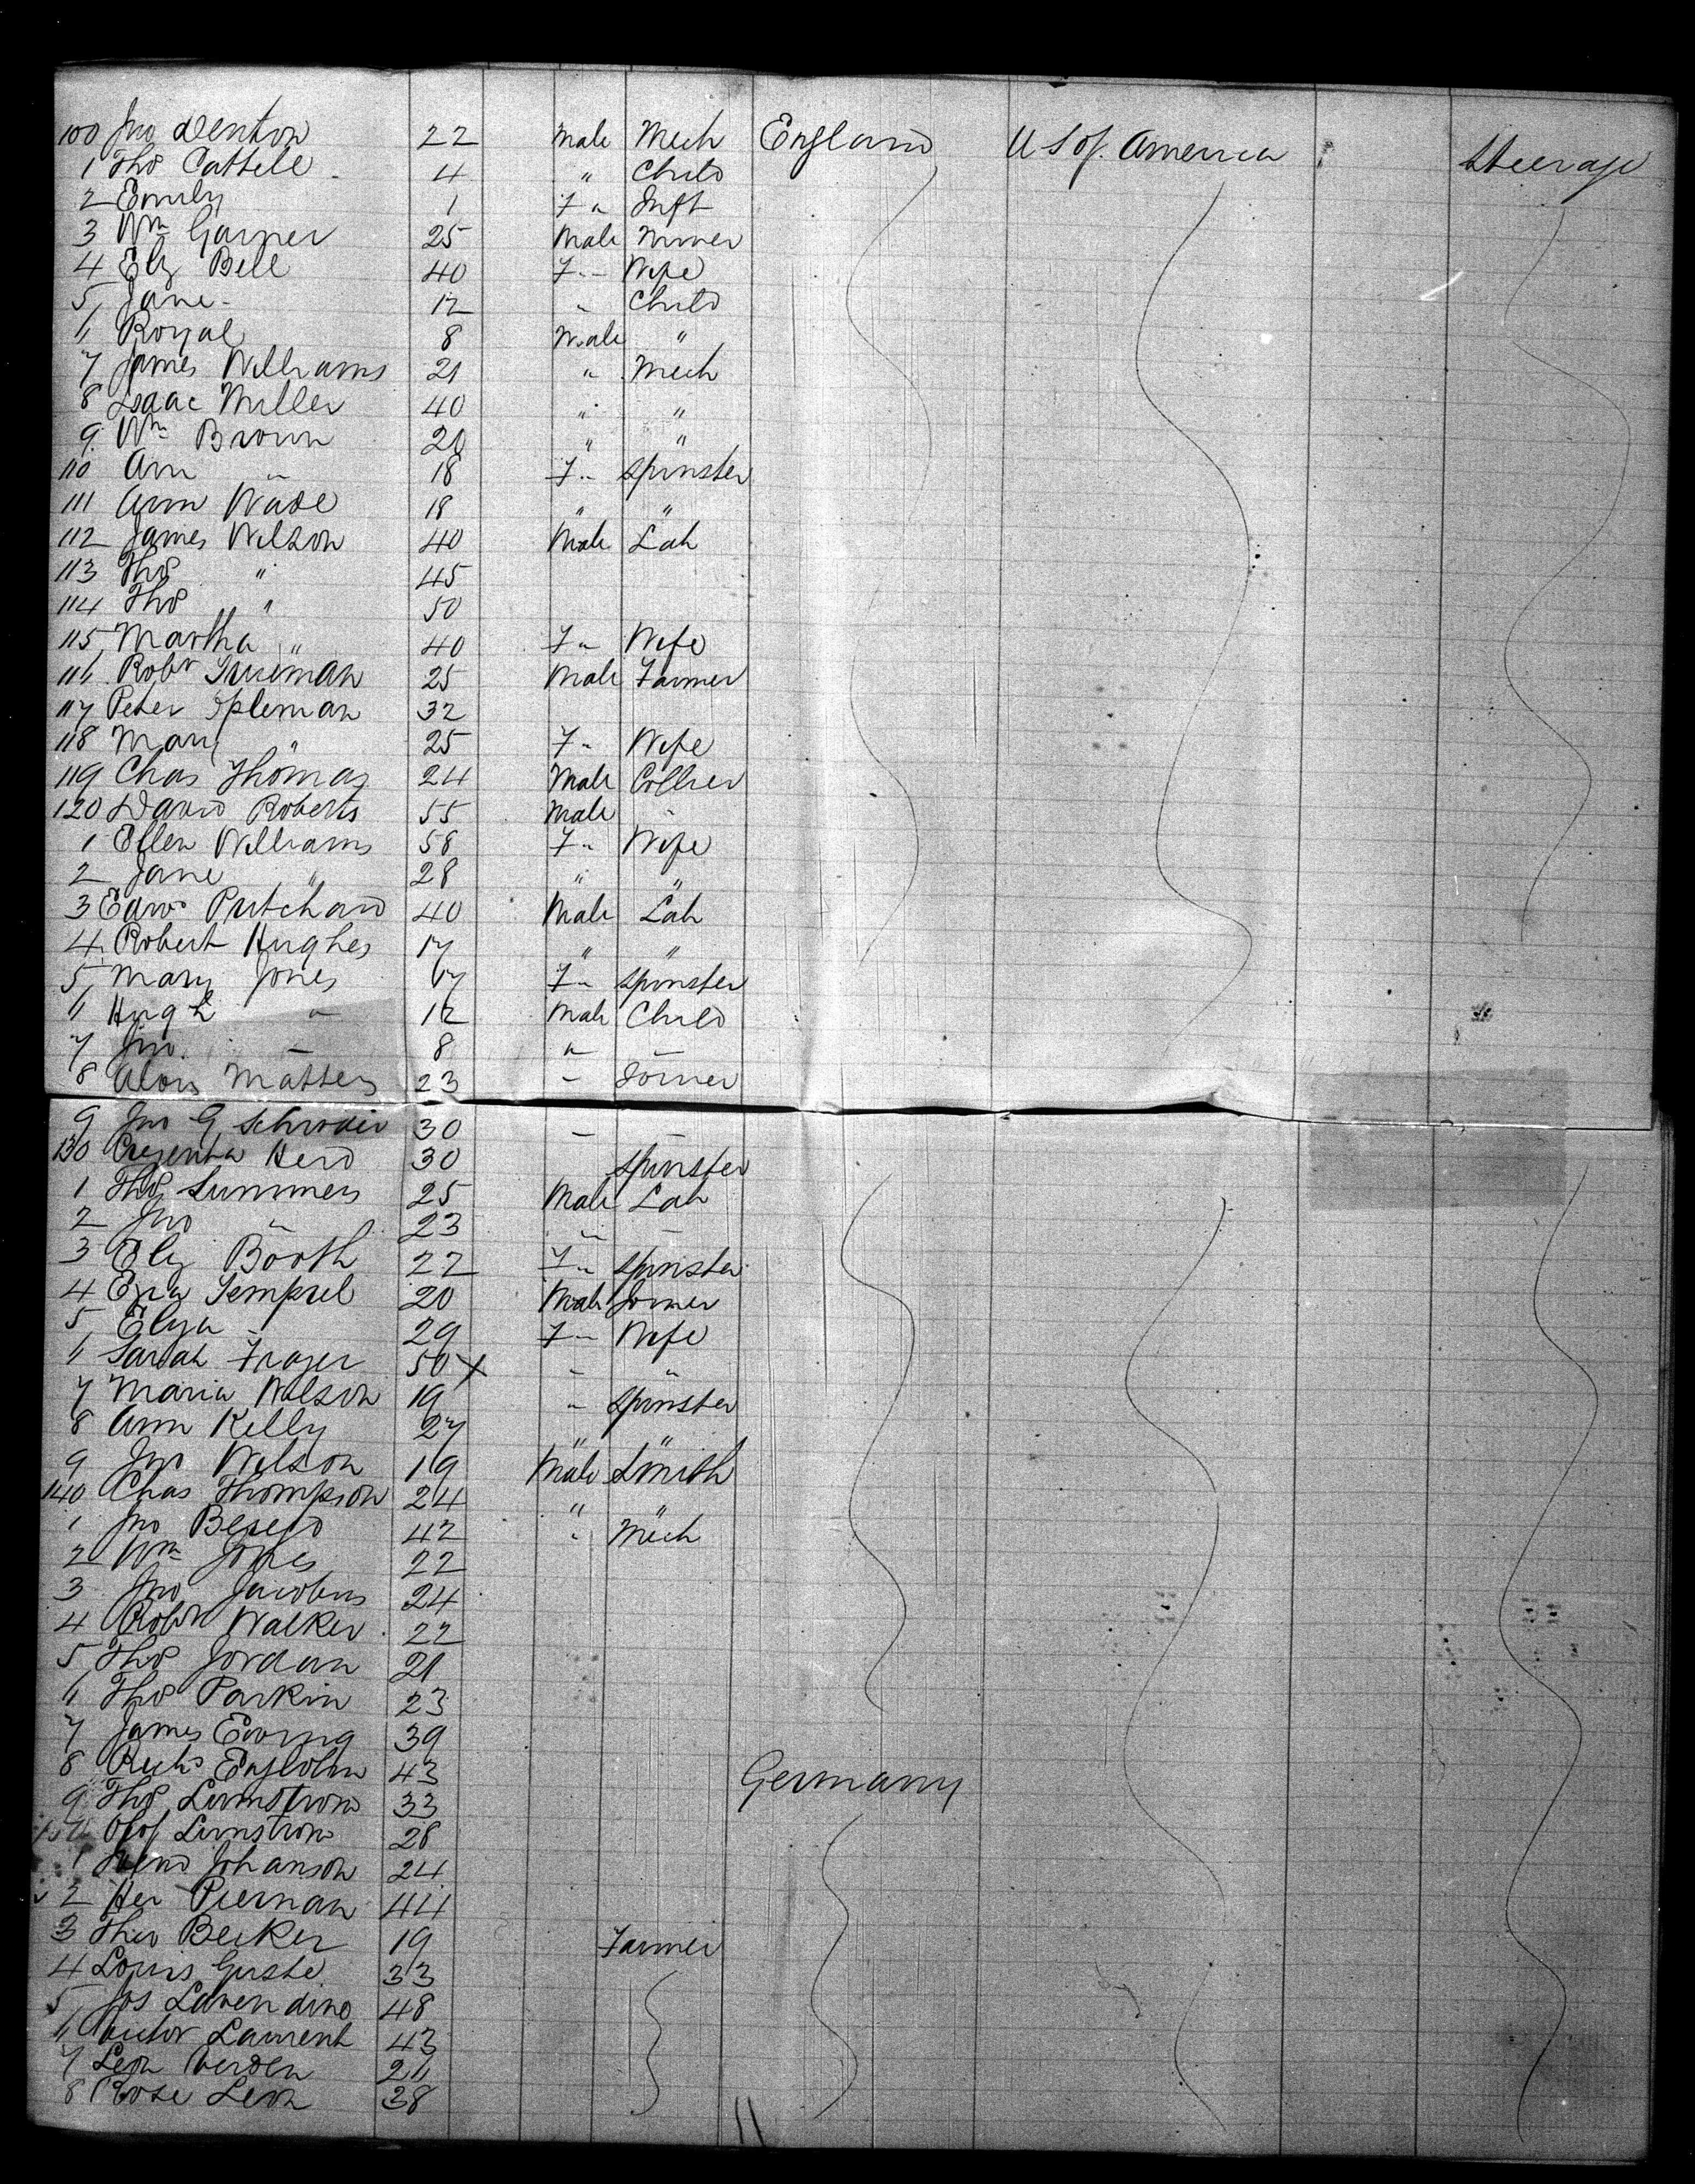 100 Jno Denton 22 Male Mech England U S of America Steerage
1 Thos Cattell 4 " Child
2 Emily 1 F " Inft
3 Wm Garner 25 Male Miner
4 Elz Bell 40 F " Wife
5 Jane 12 " Child
6 Royal 8 Male "
7 James Williams 21 " Mech
8 Isaac Miller 40 " "
9 Wm Brown 20 " "
110 Ann " 18 F " Spinster
111 Ann Wade 18 " "
112 James Wilson 40 Male Lab
113 Thos " 45
114 Thos " 50
115 Martha " 40 F " Wife
116 Robt Trueman 25 Male Farmer
117 Peter Spleman 32
118 Mary " 25 F " Wife
119 Chas Thomas 24 Male Collier
120 David Roberts 55 Male "
1 Ellen Williams 58 F " Wife
2 Jane " 28 " "
3 Edwd Pritchard 40 Male Lab
4 Robert Hughes 17 " "
5 Mary Jones 17 F " Spinster
6 Hugh " 12 Male Child
7 Jno " 8 " "
8 Alois Matters 23 " Joiner
9 Jno G Schroder 30 " "
130 Herd 30 Spinster
1 Thos Summers 25 Male Lab
2 Jno " 23 " "
3 Elz Booth 22 F " Spinster
4 Ezra 20 Male Joiner
5 Elza " 29 F " Wife
6 Sarah Frazer 50 x " "
7 Maria Wilson 19 " Spinster
8 Ann Kelly 27 " "
9 Jno Wilson 19 Male Smith
140 Chas Thompson 24 " "
1 Jno 42 " Mech
2 Wm Jones 22
3 Jno Jacobus 24
4 Robt Walker 22
5 Thos Jordan 21
6 Thos Parkin 23
7 James Ewing 39
8 Richd 43 Germany
9 Thos 33
150 Olof 28
1 Johanson 24
2 Her Pierman 44
3 Theo Becker 19 Farmer
4 Louis Guste 33
5 Jos 48
6 Victor Laurent 43
7 Leon Verden 21
8 Rose Leon 38